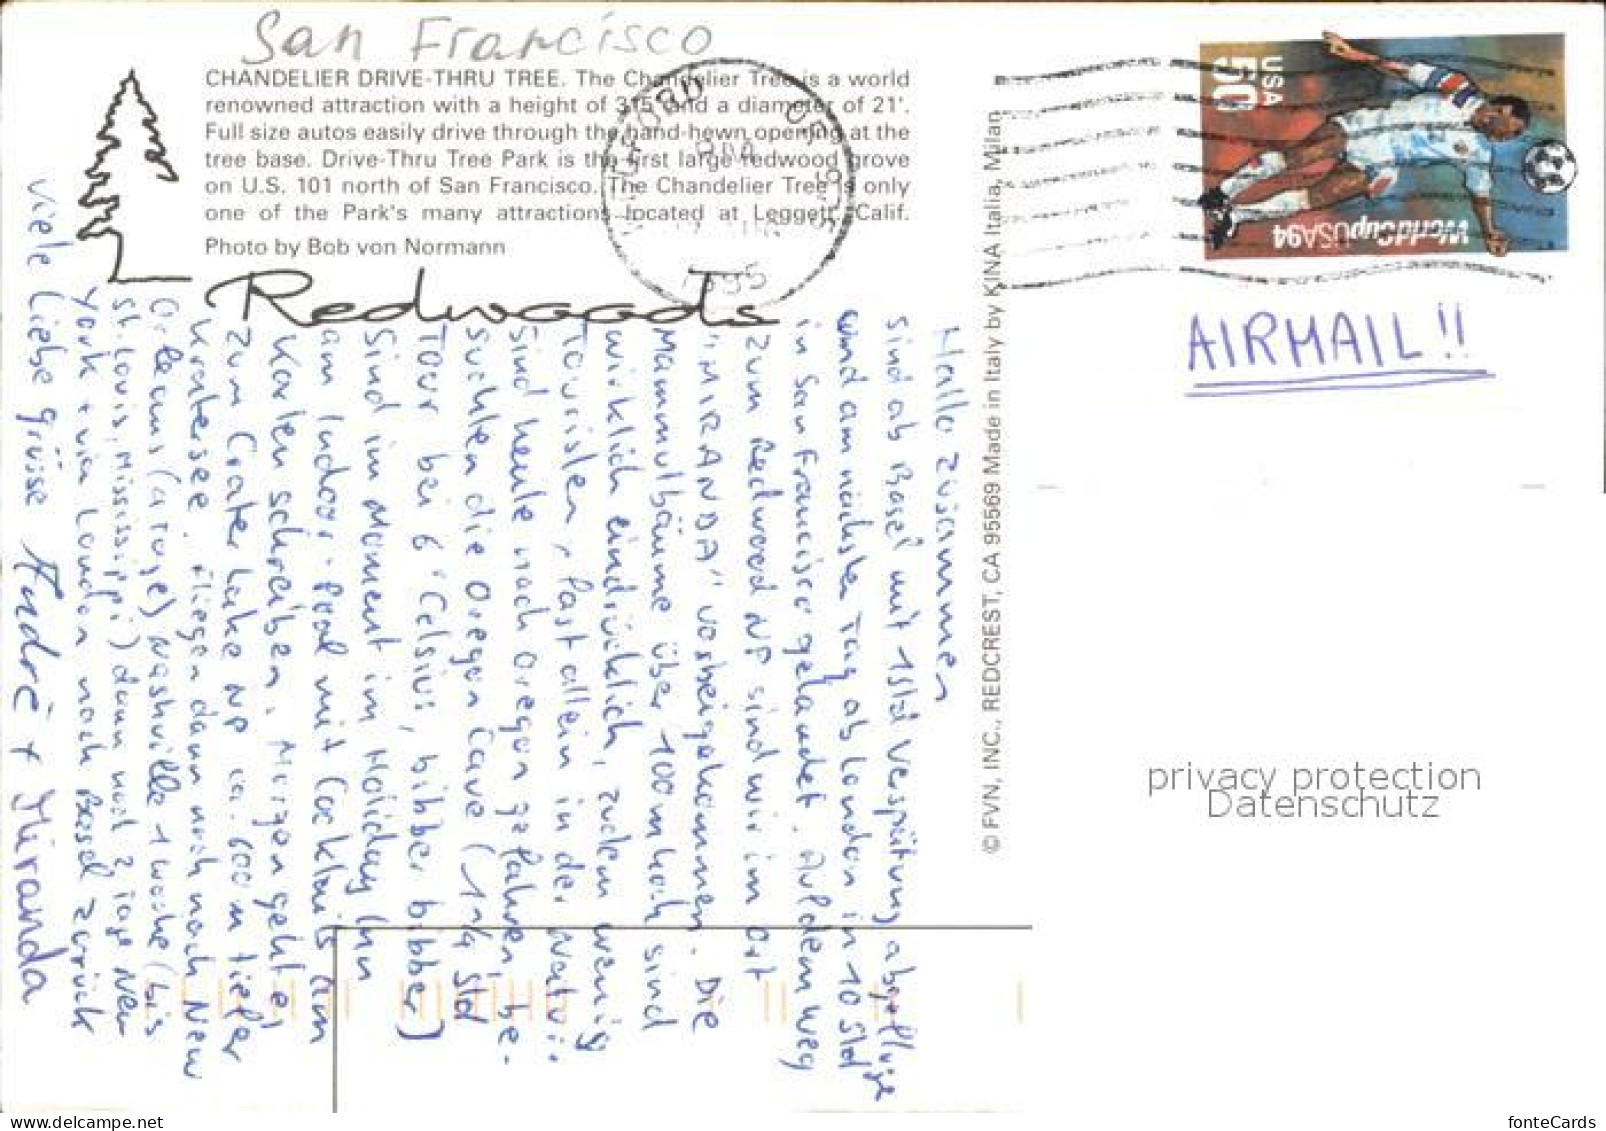 San Francisco
CHANDELIER DRIVE-THRU TREE. The Chandelier Tree is a world
renowned attraction with a height of 315' and a diameter of 21'.
Full size autos easily drive through the hand-hewn opening at the
tree base. Drive-Thru Tree Park is the first large redwood grove
on U.S. 101 north of San Francisco. The Chandelier Tree is only
one of the Park's many attractions located at Leggett, Calif.
Photo by Bob von Normann
Redwoods
1995
USA
50
WorldCupUSA94
AIRMAIL!!
© FVN, INC., REDCREST, CA 95569 Made in Italy by KINA Italia, Milan
Hallo zusammen
sind ab Basel mit 1 Std Verspätung abgefloge
und am nächsten Tag ab London in 10 Std
in San Francisco gelandet. Auf dem Weg
zum Redwood NP sind wir im Ort
"MIRANDA" vorbeigekommen. Die
Mammutbäume über 100m hoch sind
wirklich eindrücklich, zudem wenig
Touristen, fast allein in der Natur.
Sind heute nach Oregon gefahren, be-
suchten die Oregon Cave (1 1/4 Std
Tour bei 6° Celsius, bibber bibber)
Sind im Moment im Holiday Inn
am Indoor-Pool mit Cocktails am
Karten schreiben. Morgen geht es
zum Crater Lake NP ca. 600m tiefer
Kratersee. Fliegen dann noch nach New
Orleans (4 Tage) Nashville 1 Woche (bis
St. Louis, Mississippi) dann noch 2 Tage New
York + via London nach Basel zurück
viele liebe Grüsse André + Miranda
privacy protection
Datenschutz
fonteCards